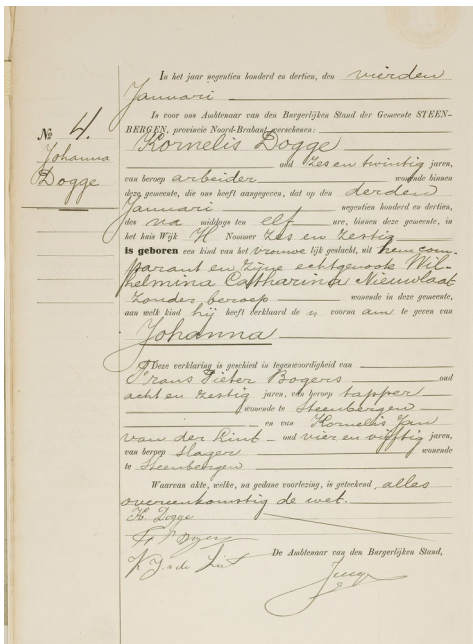 In het jaar negentien honderd en dertien, den vierden
Januari
Is voor ons Ambtenaar van den Burgerlijken Stand der Gemeente STEEN-
BERGEN, provincie Noord-Brabant verschenen:
No 4.
Johanna
Dogge
Kornelis Dogge
oud zes en twintig jaren,
van beroep arbeider wonende binnen
deze gemeente, die ons heeft aangegeven, dat op den derden
Januari negentien honderd en dertien,
des na middags ten elf ure, binnen deze gemeente, in
het huis Wijk H Nommer zes en zestig
is geboren een kind van het vrouwe lijk geslacht, uit hem com-
parant en zijne echtgenoote Wil-
helmina Catharina Nieuwlaat
zonder beroep wonende in deze gemeente,
aan welk kind hij heeft verklaard de n voorna am te geven van
Johanna
Deze verklaring is geschied in tegenwoordigheid van
Frans Pieter Bogers oud
acht en zestig jaren, van beroep tapper
wonende te Steenbergen
en van Kornelis Jan
van der Lint oud vier en vijftig jaren,
van beroep slager wonende
te Steenbergen
Waarvan akte, welke, na gedane voorlezing, is geteekend alles
overeenkomstig de wet.
K. Dogge
F P Bogers
K J v de Lint
De Ambtenaar van den Burgerlijken Stand,